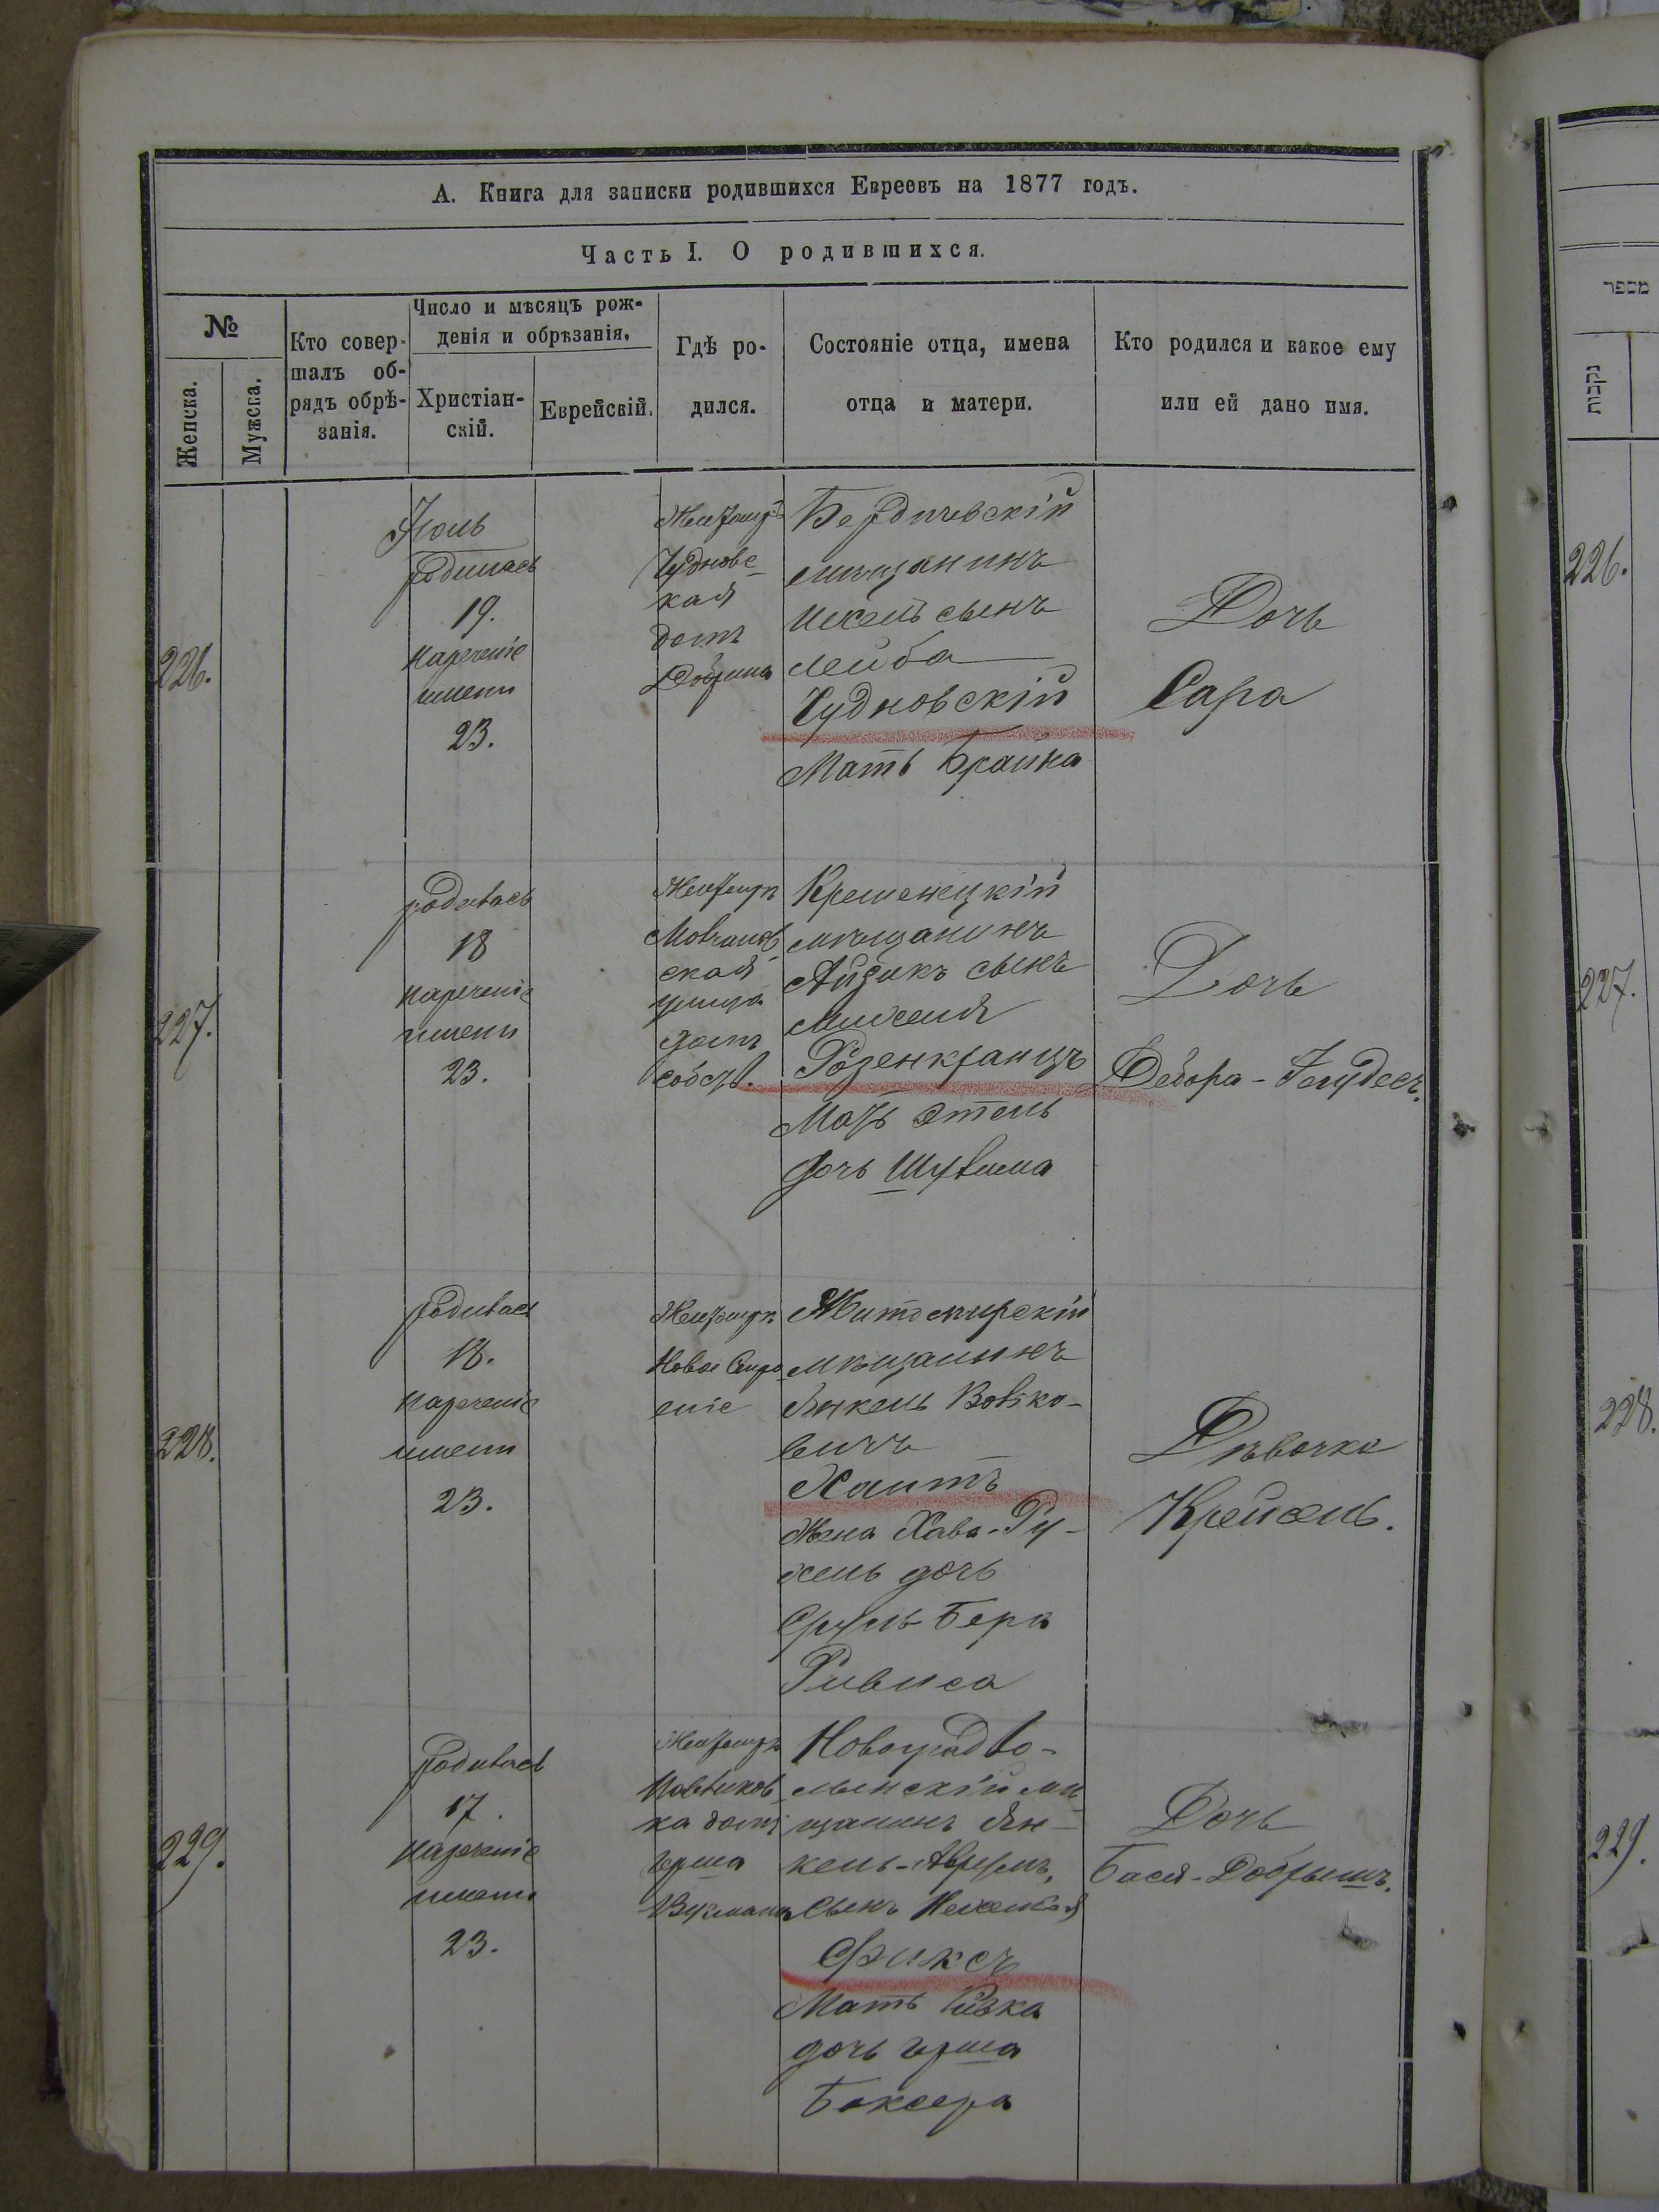 А. Книга для записки родившихся Евреевъ на 1877 годъ.
Часть I. О родившихся.
№
Женска.
Мужска.
Кто совер-
шалъ об-
рядъ обрѣ-
занія.
Число и мѣсяцъ рож-
денія и обрѣзанія.
Христіан-
скій.
Еврейскій.
Гдѣ ро-
дился.
Состояніе отца, имена
отца и матери.
Кто родился и какое ему
или ей дано имя.
226.
Іюль
родилась
19.
нареченіе
имени
23.
Чудновс-
кая
домъ
Бердичевскій
мѣщанинъ
сынъ
Лейба
Чудновскій
Мать Брайна
Дочь
Сара
227.
родилась
18
нареченіе
имени
23.
ская
улица
домъ
собств.
Кременецкій
мѣщанинъ
Айзикъ сынъ
Михеля
Розенкранцъ
Мать Этель
дочь
Дочь
Двойра-Іегудесъ.
228.
родилась
18.
нареченіе
имени
23.
Новое
еніе
Житомирскій
мѣщанинъ
Янкель Вовко-
вичъ
Хаитъ
Жена Хава-Ру-
хель дочь
Сруль Бера
Ривиса
Дѣвочка
Крейсель.
229.
родилась
17.
нареченіе
имени
23.
ка домъ
Герша
Новоградво-
лынскій мѣ
щанинъ Ян-
кель-Аврумъ,
сынъ
Фиксъ
Мать Ривка
дочь Герша
Боксера
Дочь
Бася-Добрышъ.
מספר
נקבות
226.
227.
228.
229.